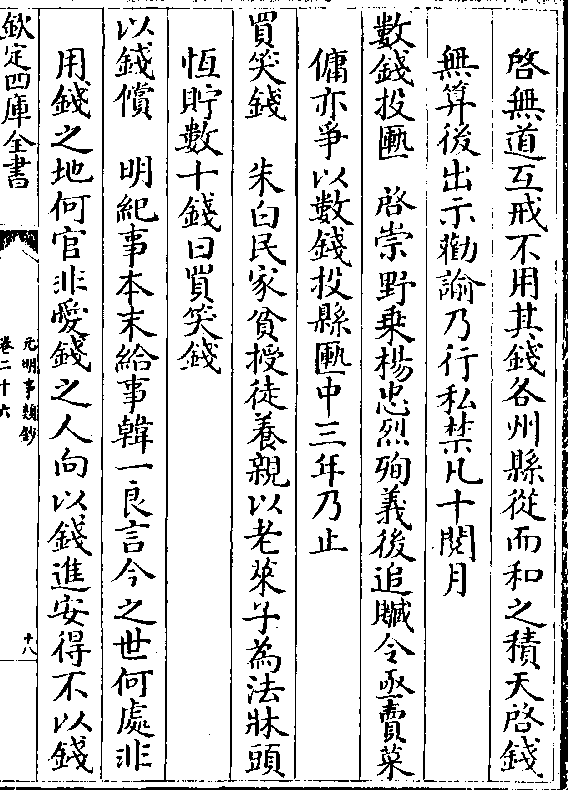 啓無道互戒不用其錢各州縣從而和之積天啓錢
無算後出示勸諭乃行私禁凡十閱月
數錢投匭　啓崇野乗楊忠烈殉義後追贓令亟賣菜
傭亦爭以數錢投縣匭中三年乃止
買笑錢　朱白民家貧授徒養親以老萊子為法牀頭
恆貯數十錢曰買笑錢
以錢償　明紀事本末給事韓一良言今之世何處非
用錢之地何官非愛錢之人向以錢進安得不以錢
欽定四庫全書
元明事類鈔
卷二十六
十八